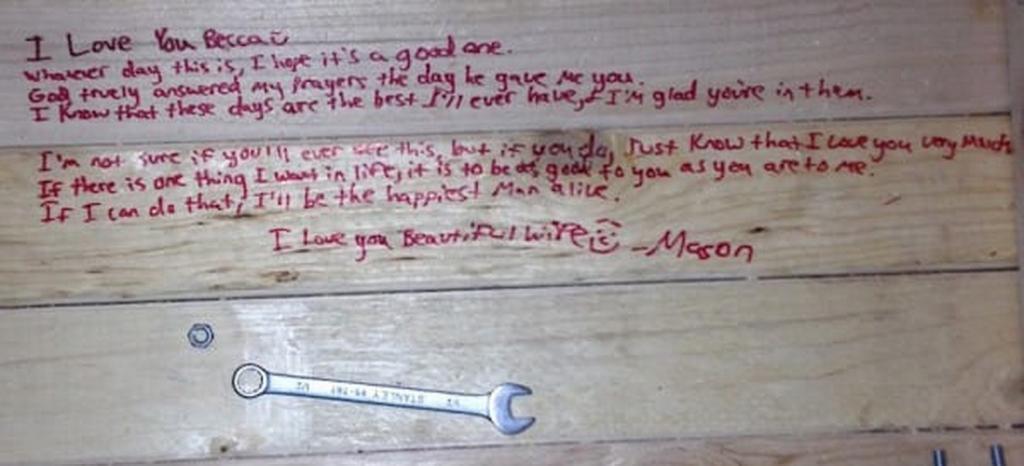 I Love You Becca
Whatever day this is, I hope it's a good one.
God truely answered my prayers the day he gave me you.
I know that these days are the best I'll ever have, & I'm glad you're in them.
I'm not sure if you'll ever see this, but if you do, Just know that I Love you very much
If there is one thing I want in life, it is to be as good to you as you are to me.
If I can do that, I'll be the happiest Man alive.
I Love you Beautiful wife, -Mason
1/2 STANLEY 1/2